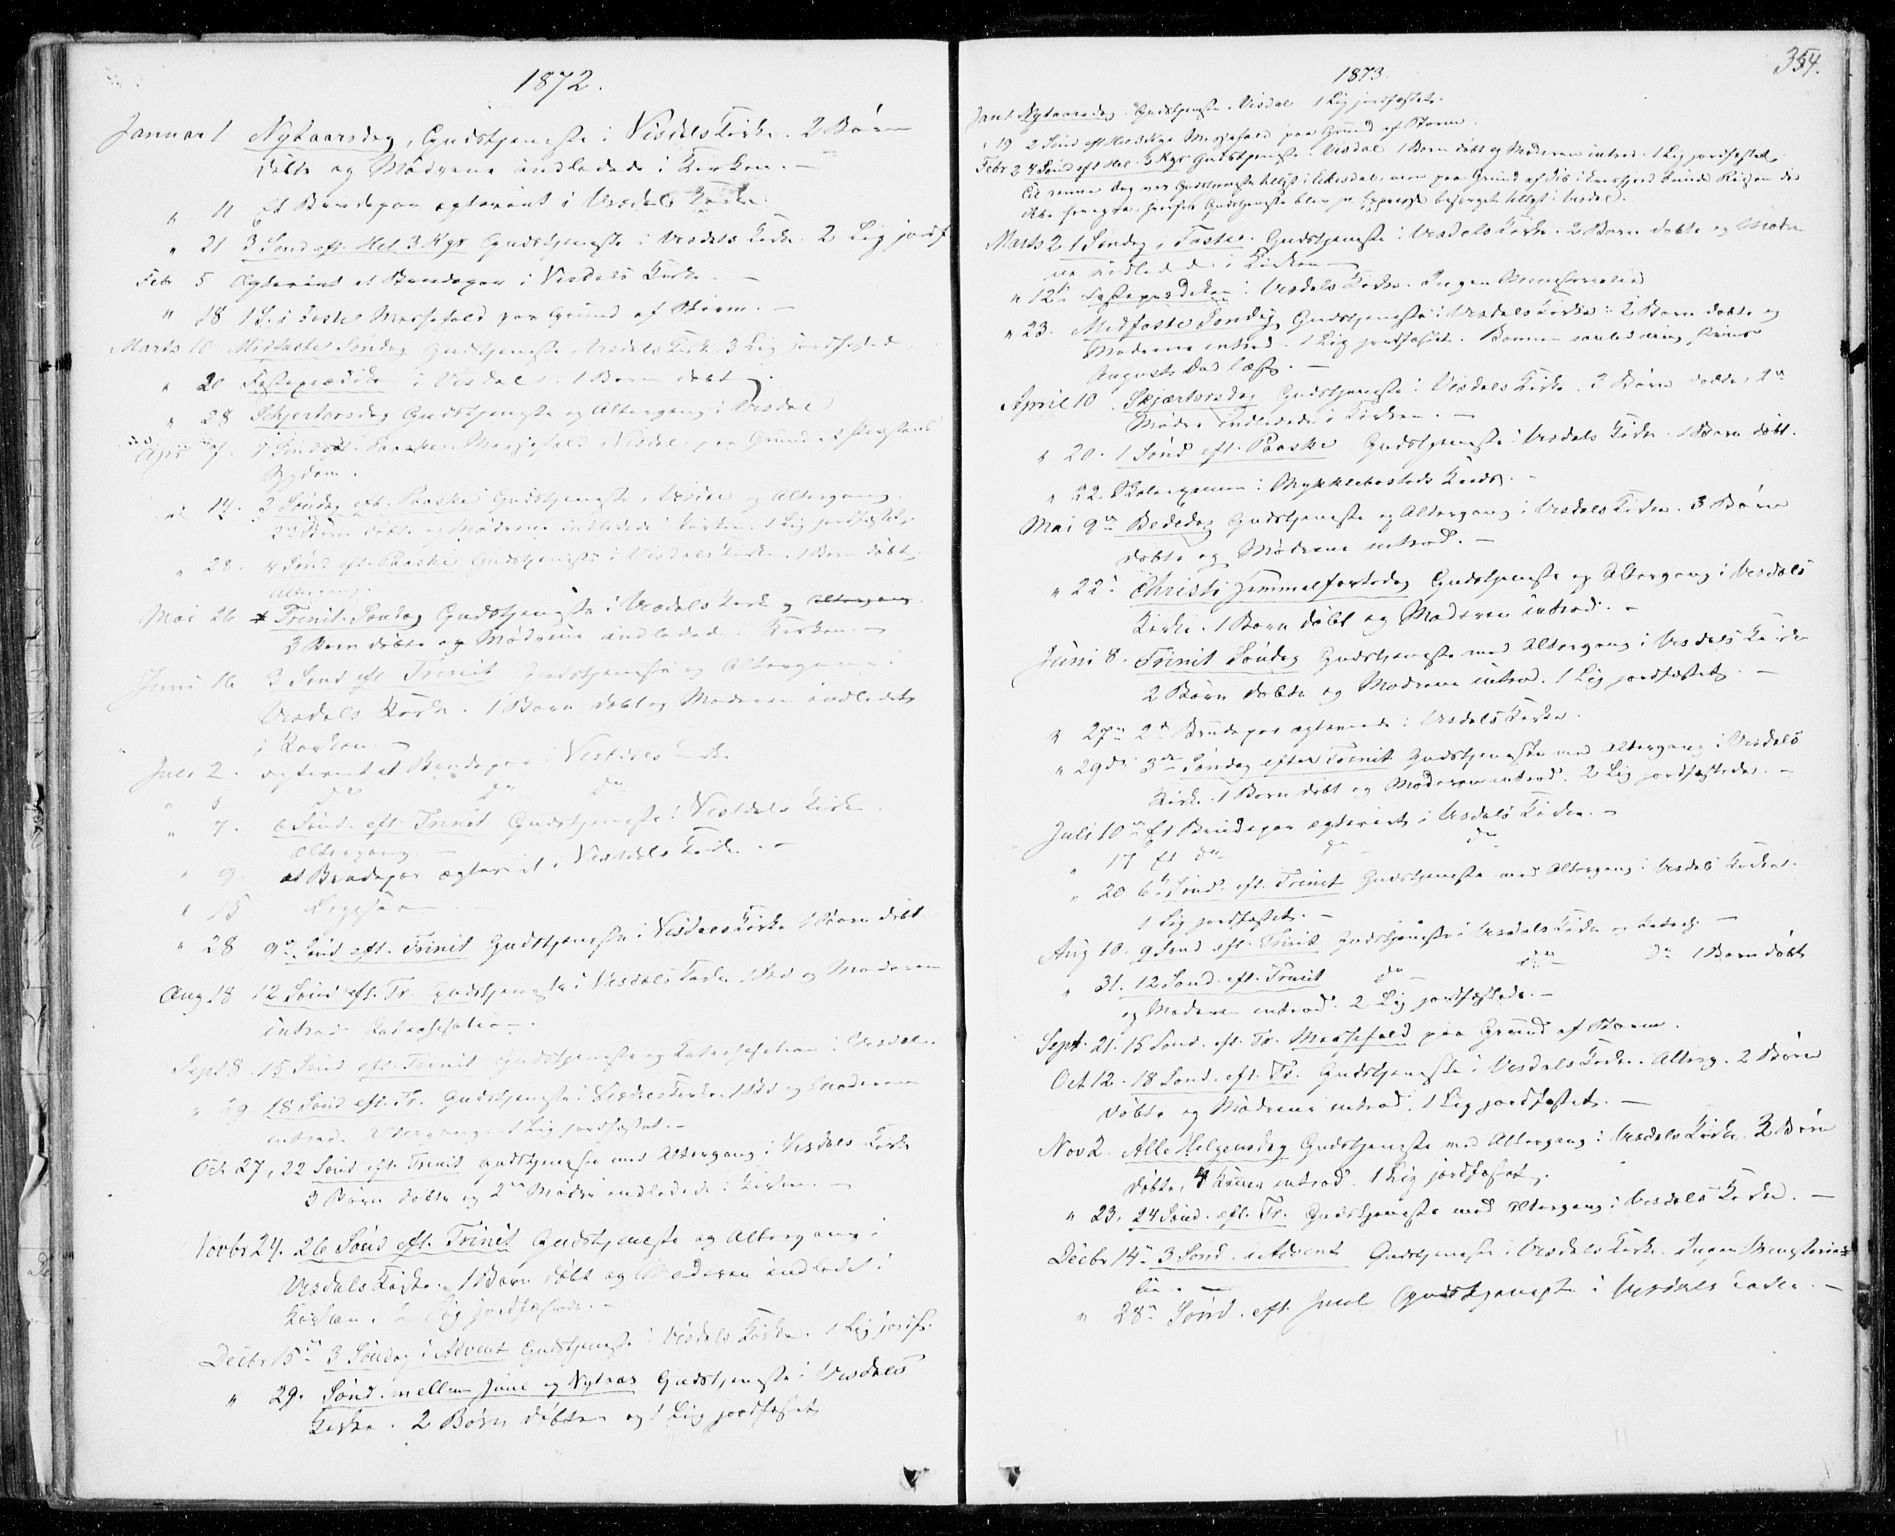 1872.
Januar 1 Nytaarsdag, Gudstjeneste i Visdals Kirke. 2 Børn
døbte og Mødrene indledede i Kirken. –
" 11 Et Brudepar ægteviet i Visdals Kirke.
" 21 3 Sønd eft. Hel. 3 Kgr Gudstjeneste i Visdals Kirke. 2 Lig jordf
Febr 5 Ægteviet et Brudepar i Visdals Kirke. –
" 18 1 S. i Faste Messefald paa Grund af Storm. –
Marts 10 Midfaste Søndag Gudstjeneste i Visdals Kirke. 3 Lig jordfæstede.
" 20 Fasteprædiken i Visdal. 1 Barn døbt.
" 28 Skjertorsdag Gudstjeneste og Altergang i Visdal
April 7. 1 Sønd eft. Paaske. Messefald i Visdal paa Grund af Præstens
Sygdom.
" 14. 2 Søndag eft. Paaske Gudstjeneste i Visdal og Altergang.
2de Børn døbte og Mødrene indledede i Kirken. 1 Lig jordfæstet.
" 28. 4 Sønd eft. Paaske Gudstjeneste i Visdals Kirke. 1 Barn døbt.
Altergang.
Mai 26 Trinit. Søndag Gudstjeneste i Visdals Kirke og Altergang.
3 Børn døbte og Mødrene indledede i Kirken. –
Juni 16 3 Sønd eft Trinit Gudstjeneste og Altergang i
Visdals Kirke. 1 Barn døbt og Moderen indledet
i Kirken. –
Juli 2. ægteviet et Brudepar i Visdals Kirke
" 5 do do do
" 7. 6 Sønd. eft. Trinit Gudstjeneste i Visdals Kirke.
Altergang. –
" 9. et Brudepar ægteviet i Visdals Kirke. –
" 15
" 28 9de Sønd eft. Trinit Gudstjeneste i Visdals Kirke 1 Barn døbt
Aug 18 12 Sønd eft. Tr. Gudstjeneste i Visdals Kirke. 1 Barn og Moderen
introd. Katechisation.
Sept 8. 15 Sønd eft. Trinit Gudstjeneste og Katechisation i Visdalen
" 29 18 Sønd eft. Tr. Gudstjeneste i Visdals Kirke. 1 og Moderen
introd. Altergang. 1 Lig jordfæstet. –
Oct 27, 22 Sønd eft. Trinit Gudstjeneste med Altergang i Visdals Kirke
3 Børn døbte og 2de Mødre indledede i Kirken. –
Novbr 24. 26 Sønd eft. Trinit Gudstjeneste og Altergang i
Visdals Kirke. 1 Barn døbt og Moderen indledet i
Kirken. 2 Lig jordfæstede. –
Decbr 15de 3 Søndag i Advent Gudstjeneste i Visdals Kirke. 1 Lig jordf.
" 29. Sønd. mellem Juul og Nytaar Gudstjeneste i Visdals
Kirke. 2 Børn døbte og 1 Lig jordfæstet
354.
1873.
Jan 1 Nytaarsdag. Gudstjeneste i Visdal 1 Lig jordfæstet.
" 19 2 Sønd eft Hel 3 Kgr Messefald paa Grund af Storm.
Febr 2 4 Sønd eft Hel. 3 Kgr Gudstjeneste i Visdal 1 Barn døbt og Moderen introd. 1 Lig jordfæstet.
Til samme Dag var Gudstjeneste tillyst i Eikisdal, men paa Grund af Iis i Eirisfjord kunde Reisen did
ikke foregaa, hvorfor Gudstjeneste blev pr Expresse besørget tillyst i Visdal.
Marts 2 1 Søndag i Faste. Gudstjeneste i Visdals Kirke. 2 Børn døbte og Mødre
ne indledede i Kirken –
" 12te Fasteprædiken i Visdals Kirke. Ingen Ministerialia
" 23. Midfaste Søndag Gudstjeneste i Visdals Kirke. 2 Børn døbte og
Mødrene introd. 1 Lig jordfæstet. Bønnen i anledning Prins
Augusts Død læst. –
April 10. Skjærtorsdag Gudstjeneste i Visdals Kirke. 3 Børn døbte, 2de
Mødre indledede i Kirken. –
" 20. 1 Sønd eft. Paaske Gudstjeneste i Visdals Kirke. 1 Barn døbt.
" 22. Skoleexamen i Myklebostads Kreds. –
Mai 9de Bededag Gudstjeneste og Altergang i Visdals Kirke. 3 Børn
døbte og Mødrene introd. –
" 22. Christi Himmelfartsdag Gudstjeneste og Altergang i Visdals
Kirke. 1 Barn døbt og Moderen introd. –
Juni 8. Trinit Søndag Gudstjeneste med Altergang i Visdals Kirke
2 Børn døbte og Mødrene introd. 1 Lig jordfæstet. –
" 27de 2de Brudepar ægteviede i Visdals Kirke.
" 29de 3de Søndag efter Trinit Gudstjeneste med Altergang i Visdals
Kirke. 1 Barn døbt og Moderen introd. 2 Lig jordfæstede. –
Juli 10de Et Brudepar ægteviet i Visdals Kirke. –
" 17 Et do do do
" 20 6te Sønd. eft. Trinit Gudstjeneste med Altergang i Visdals Kirke.
1 Lig jordfæstet. –
Aug 10. 9 Sønd eft. Trinit Gudstjeneste i Visdals Kirke og Katech. –
" 31. 12 Sønd. eft. Trinit do do do 1 Barn døbt
og Moderen introd. 2 Lig jordfæstede. –
Sept. 21. 15 Sønd. eft. Tr. Messefald paa Grund af Storm.
Oct 12. 18 Sønd. eft. Tr. Gudstjeneste i Visdals Kirke. Alterg. 2 Børn
døbte og Mødrene introd. 1 Lig jordfæstet. –
Nov 2. Alle Helgensdag Gudstjeneste med Altergang i Visdals Kirke. 3 Børn
døbte, 4 Koner introd. 1 Lig jordfæstet.
" 23, 24 Sønd. eft. Tr. Gudstjeneste med Altergang i Visdals Kirke. –
Decbr 14de 3 Sønd. i Advent Gudstjeneste i Visdals Kirke. Ingen Ministeria
lia. –
" 28de Sønd. eft. Juul Gudstjeneste i Visdals Kirke. –